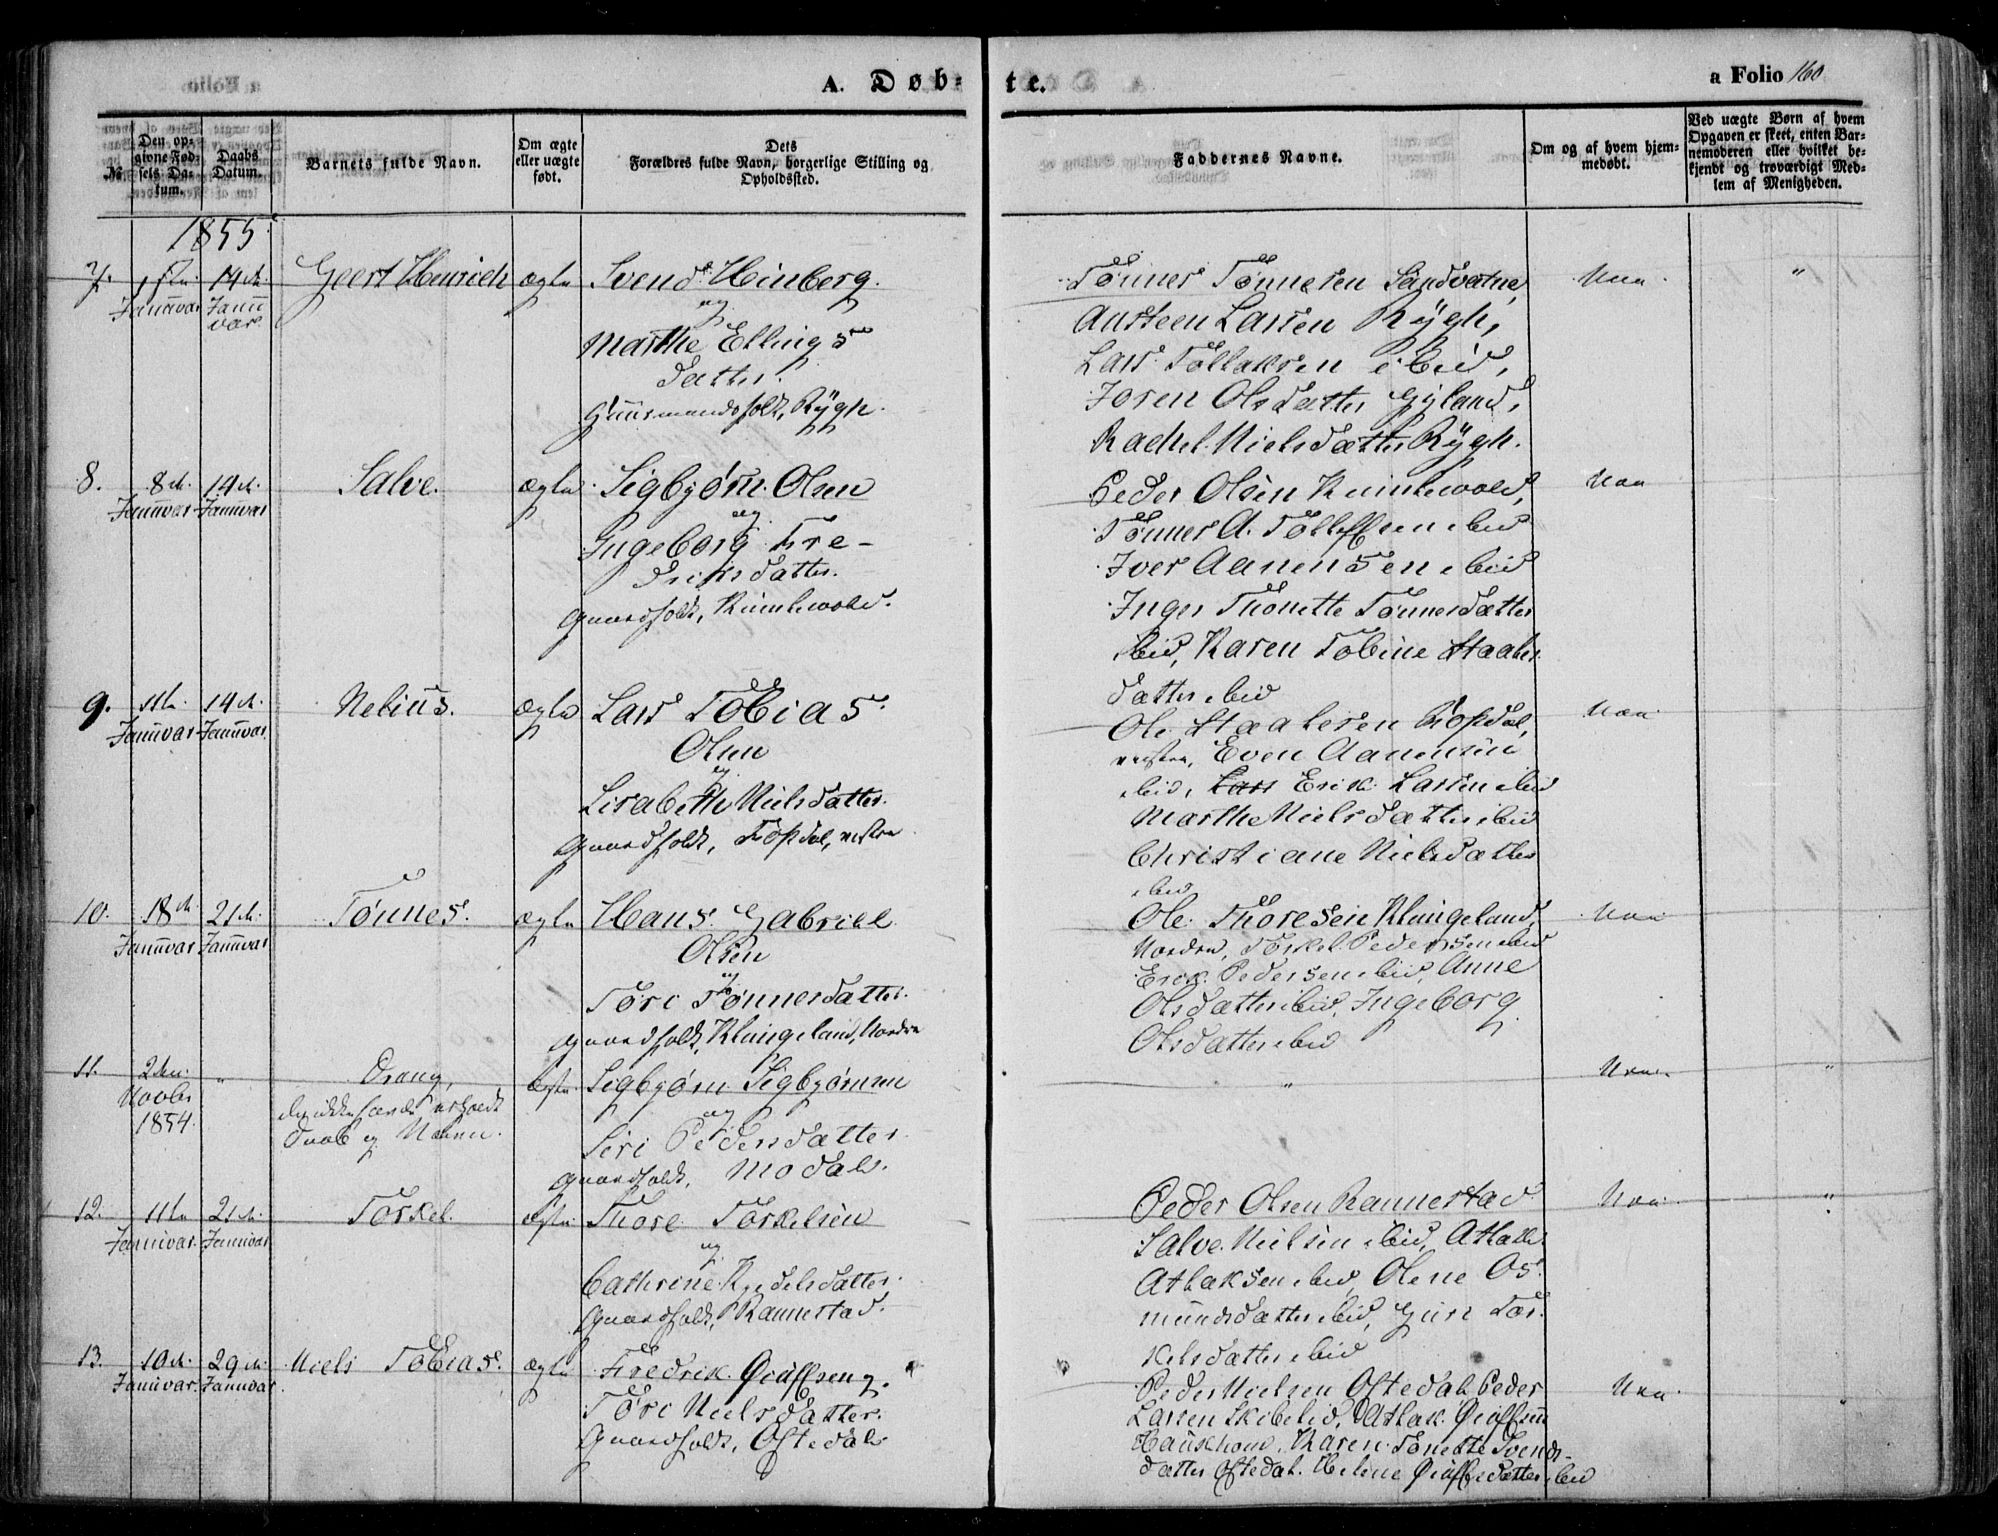 A. Døb-
te.
a Folio 160
№
Den opgivne Fødsels Datum.
Daabs Datum.
Barnets fulde Navn.
Om ægte eller uægte født.
Dets Forældres fulde Navn, borgerlige Stilling og Opholdssted.
Faddernes Navne.
Om og af hvem hjemmedøbt.
Ved uægte Børn af hvem Opgaven er skeet, enten Barnemoderen eller hvilket bekjendt og troværdigt Medlem af Menigheden.
1855
7.
Januuar
14de
Januuar
Geert Henrich
ægte
Svend Hinberg
og
Marthe Ellings
datter.
Huusmandsfolk, Rygh.
Tønnes Tønnesen Sandvatne,
Austeen Larsen Rygh,
Lars Tollaksen ibid,
Joren Olsdatter Gyland,
Rachel Nielsdatter Rygh.
Nei
"
8.
8de
Januuar
14de
Januuar
Salve.
ægte
Sigbjørn Olsen
og
Ingeborg Fre-
driksdatter.
Gaardfolk,
Peder Olsen
Tønnes A. Tollefsen ibid
Iver Aanensen ibid
Inger Thonette Tønnesdatter
ibid, Karen Tobine Staales
datter ibid
Nei
9.
11te
Januuar
14de
Januuar
Nelius.
ægte
Lars Tobias
Olsen
og
Lisabeth Nielsdatter.
Gaardfolk, Topdal, vestre
Ole Staalesen Topdal,
vestre, Even Aanensen
ibid, Erik Larsen ibid
Marthe Nielsdatter ibid
Christiane Nielsdatter
ibid
Nei
10.
18de
Januuar
21de
Januuar
Tønnes.
ægte
Hans Gabriel
Olsen
og
Tori Tønnesdatter.
Gaardfolk, Klungeland, Nordre
Ole Thoresen Klungeland,
Nordre, Torkel Pedersen ibid
Erik Pedersen ibid, Anne
Olsdatter ibid, Ingeborg
Olsdatter ibid
Nei
11.
2den
Novbr
1854.
"
Dreng,
der ikke havde erholdt
Daab og Navn.
ægte
Sigbjørn Sigbjørnsen
og
Siri Pedersdatter
Gaardfolk, Modal.
"
Nei
"
12.
11te
Januuar
21de
Januuar
Torkel.
ægte
Thore Torkelsen
og
Cathrine Kjedelsdatter.
Gaardfolk, Rannestad.
Peder Olsen Rannestad
Salve Nielsen ibid, Atlak
Atlaksen ibid, Olene Os-
mundsdatter ibid, Guri Tor-
kelsdatter ibid
Nei
"
13.
10de
Januuar
29de
Januuar
Niels Tobias.
ægte
Fredrik Øiulfsen og
Tori Nielsdatter.
Gaardfolk, Oftedal
Peder Nielsen Oftedal, Peder
Larsen Skibelid, Atlak Øiulfsen
Haughom, Karen Tonette Svends-
datter Oftedal. Helene Øiulfsdatter ibid
Nei